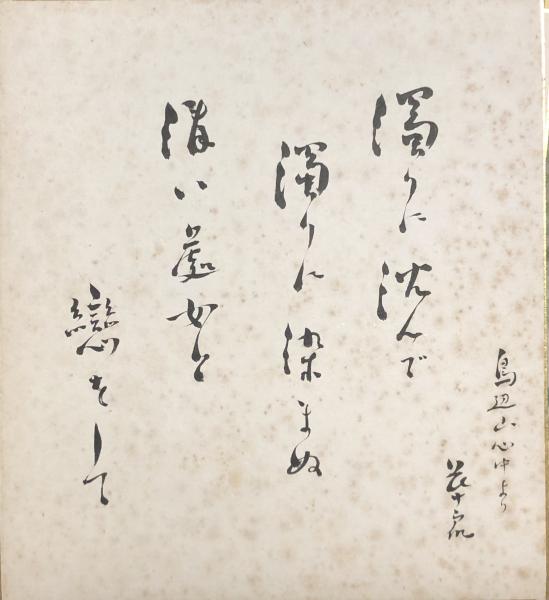 濁りに沈んで
濁りに染まぬ
清い處女と
戀をして
鳥辺山心中より